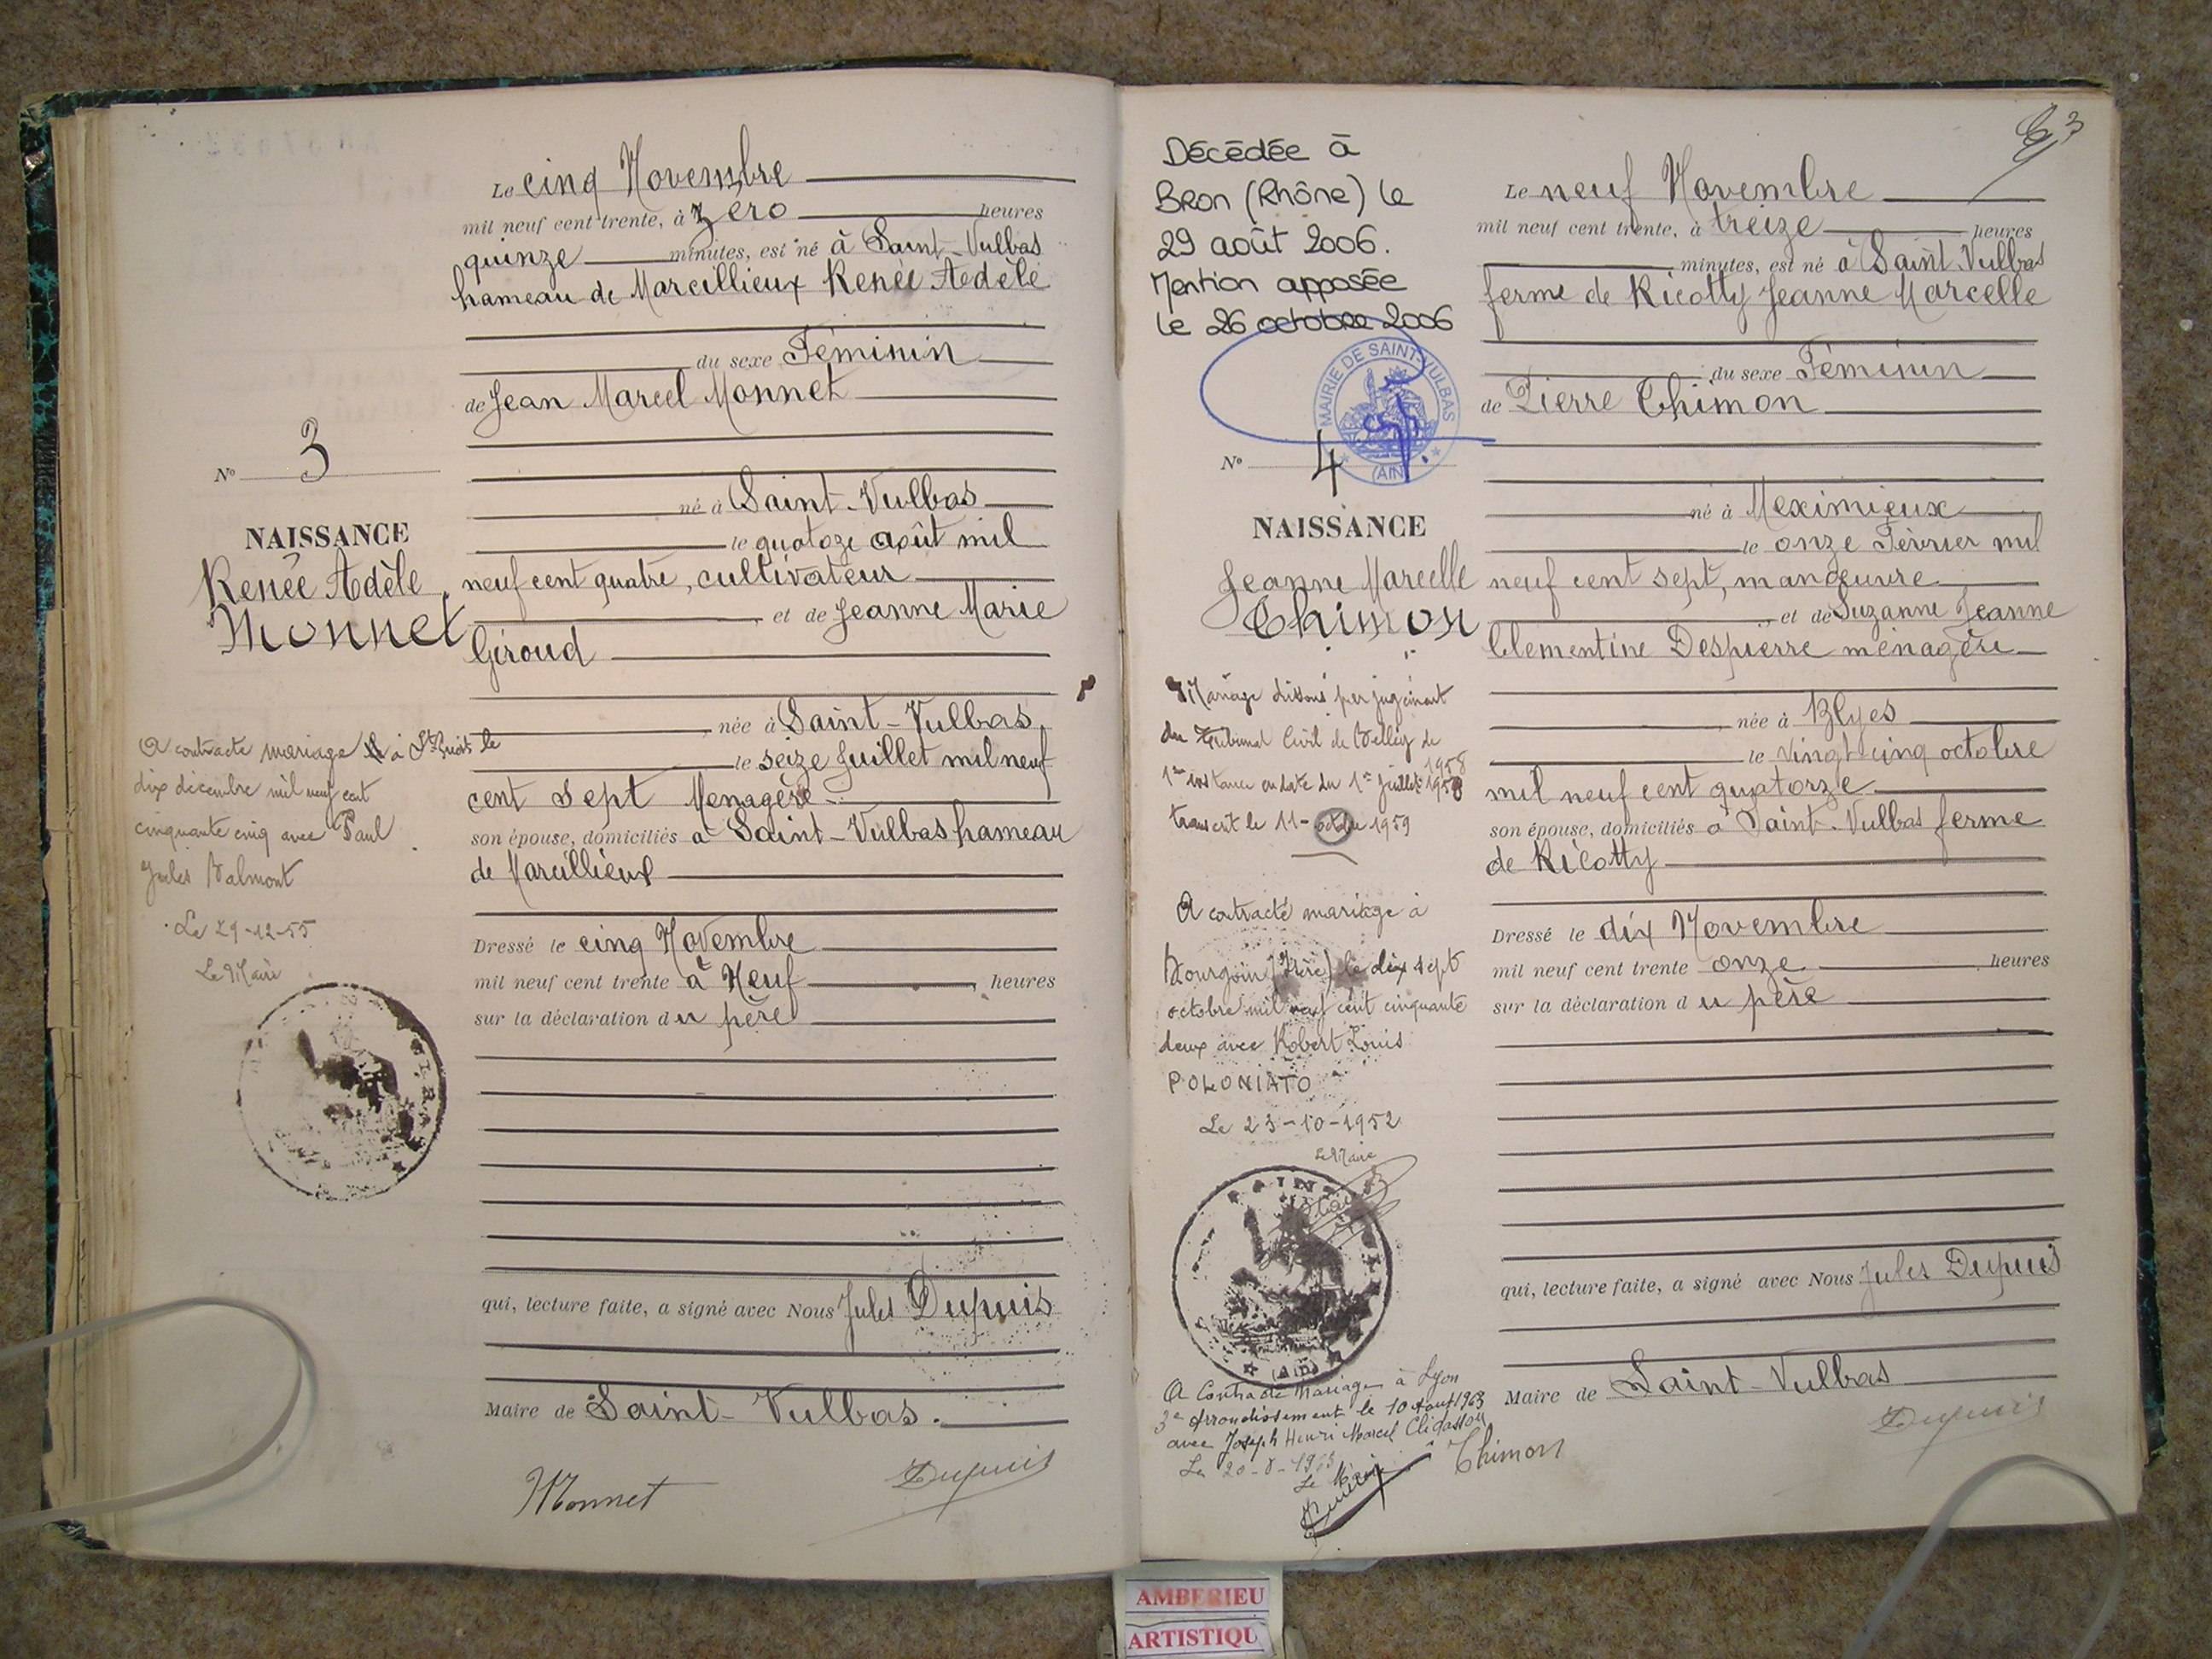 Le cinq Novembre
mil neuf cent trente, à zéro heures
quinze minutes, est né à Saint-Vulbas
hameau de Marcillieux Renée Adèle
du sexe Féminin
de Jean Marcel Monnet
né à Saint-Vulbas
le quatoze août mil
neuf cent quatre, cultivateur
et de Jeanne Marie
Giroud
née à Saint-Vulbas
le seize Juillet mil neuf
cent sept Menagère
son épouse, domiciliés à Saint-Vulbas hameau
de Marcillieux
Dressé le cinq Novembre
mil neuf cent trente à Neuf heures
sur la déclaration du père
qui, lecture faite, a signé avec Nous Jules Dupuis
Maire de Saint-Vulbas.
Monnet Dupuis
No 3
NAISSANCE
Renée Adèle
Monnet
A contracte mariage à le
dix décembre mil neuf cent
cinquante cinq avec Paul
Jules Valmont
Le 29-12-55
Le Maire
Décédée à
Bron (Rhône) le
29 août 2006.
Mention apposée
le 26 octobre 2006
MAIRIE DE SAINT-VULBAS
(AIN)
No 4
NAISSANCE
Jeanne Marcelle
Chimon
Mariage dissous par jugement
du Tribunal Civil de Belley de
1958
1re instance en date du 1er juillet
transcrit le 11-octobre 1959
A contracté mariage à
Bourgoin (Isère) le dix sept
octobre mil neuf cent cinquante
deux avec Robert Louis
POLONIATO
Le 23-10-1952
Le Maire
SAINT
(Ain)
A Contracté Mariage à Lyon
3e Arrondissement le 10 Aout 1963
avec Joseph Henri Marcel Clidassou
Le 20-8-1963
Le Maire
3
Le neuf Novembre
mil neuf cent trente, à treize heures
minutes, est né à Saint-Vulbas
ferme de Ricotty Jeanne Marcelle
du sexe Féminin
de Pierre Chimon
né à Meximieux
le onze Février mil
neuf cent sept, manœuvre
et de Suzanne Jeanne
Clementine Despierre ménagère
née à Blyes
le vingt cinq octobre
mil neuf cent quatorze
son épouse, domiciliés à Saint-Vulbas ferme
de Ricotty
Dressé le dix Novembre
mil neuf cent trente onze heures
sur la déclaration du père
qui, lecture faite, a signé avec Nous Jules Dupuis
Maire de Saint-Vulbas
Chimon Dupuis
AMBERIEU
ARTISTIQU